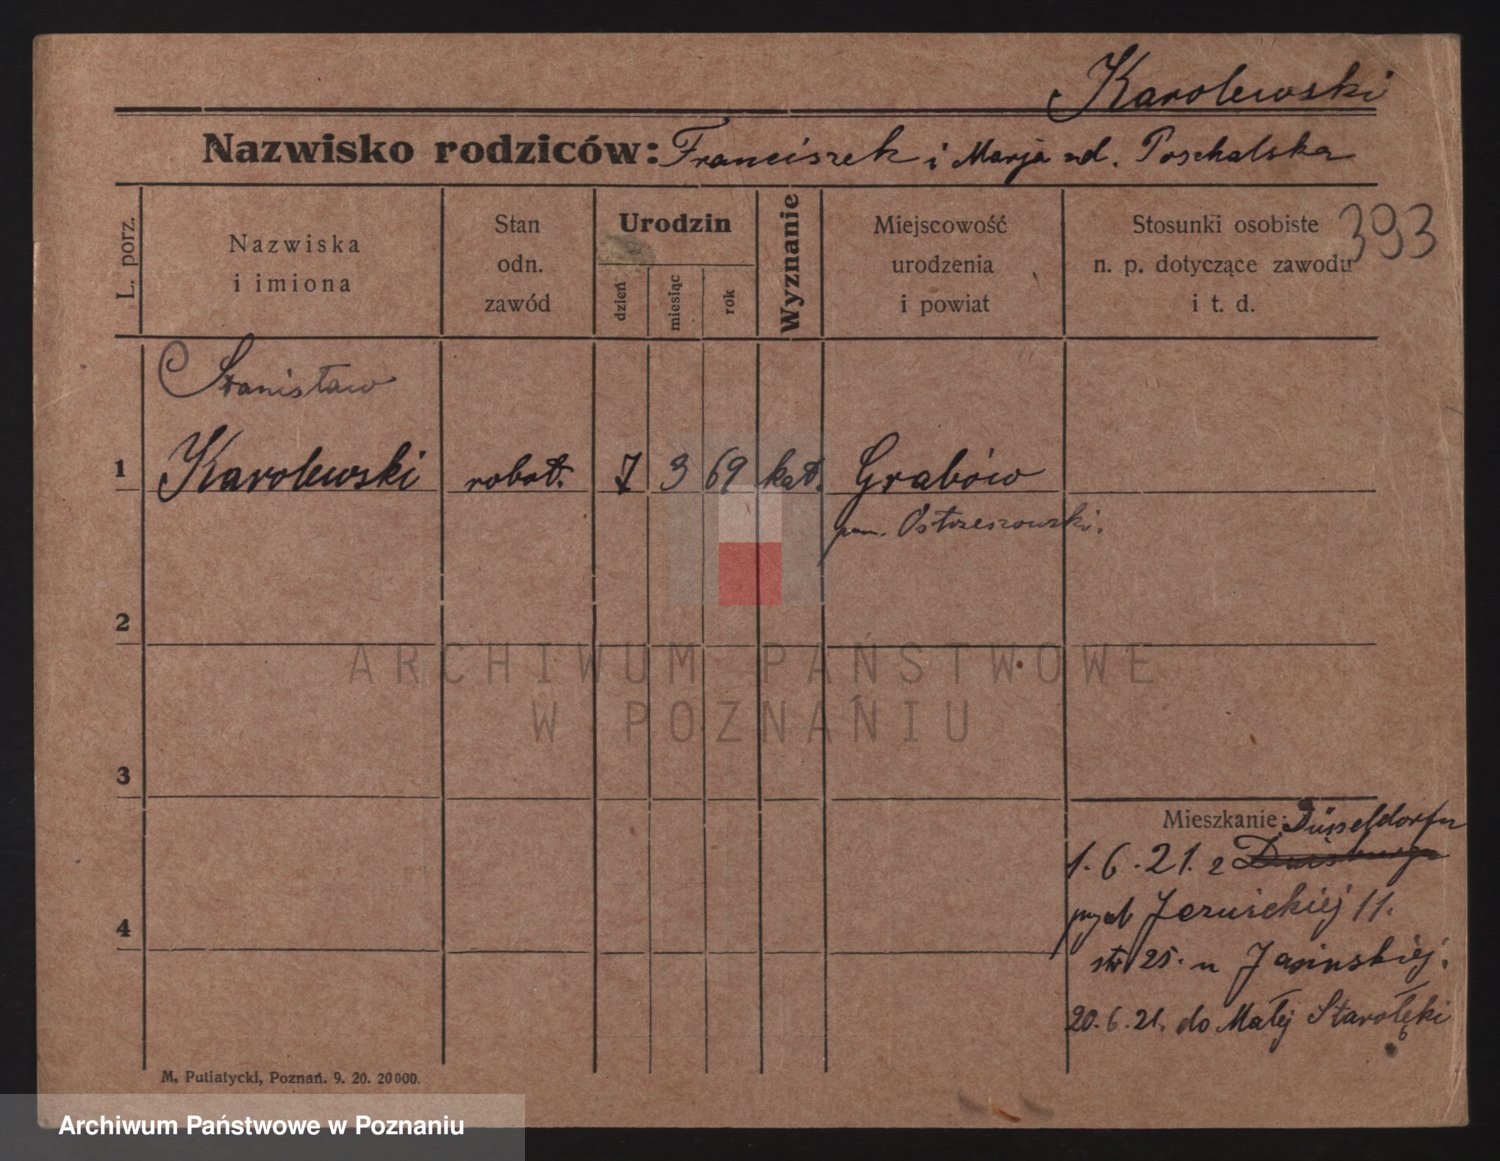 Karolewski
Nazwisko rodziców: Franciszek i Marja ud. Poszkalska
L. porz.
Nazwiska
i imiona
Stan
odn.
zawód
Urodzin
dzień
miesiąc
rok
Wyznanie
Miejscowość
urodzenia
i powiat
Stosunki osobiste
n. p. dotyczące zawodu
i t. d.
393
Stanisław
1 Karolewski robot. 7 3 69 kat. Grabów
pow. Ostrzeszowski.
2
3
4
Mieszkanie: Düsseldorfu
1.6.21. z Duisburga
Jezuickiej 11.
str 25. u Jasinskiej.
20.6.21. do Małej Starołęki
M. Putiatycki, Poznań. 9. 20. 20000.
ARCHIWUM PAŃSTWOWE
W POZNANIU
Archiwum Państwowe w Poznaniu